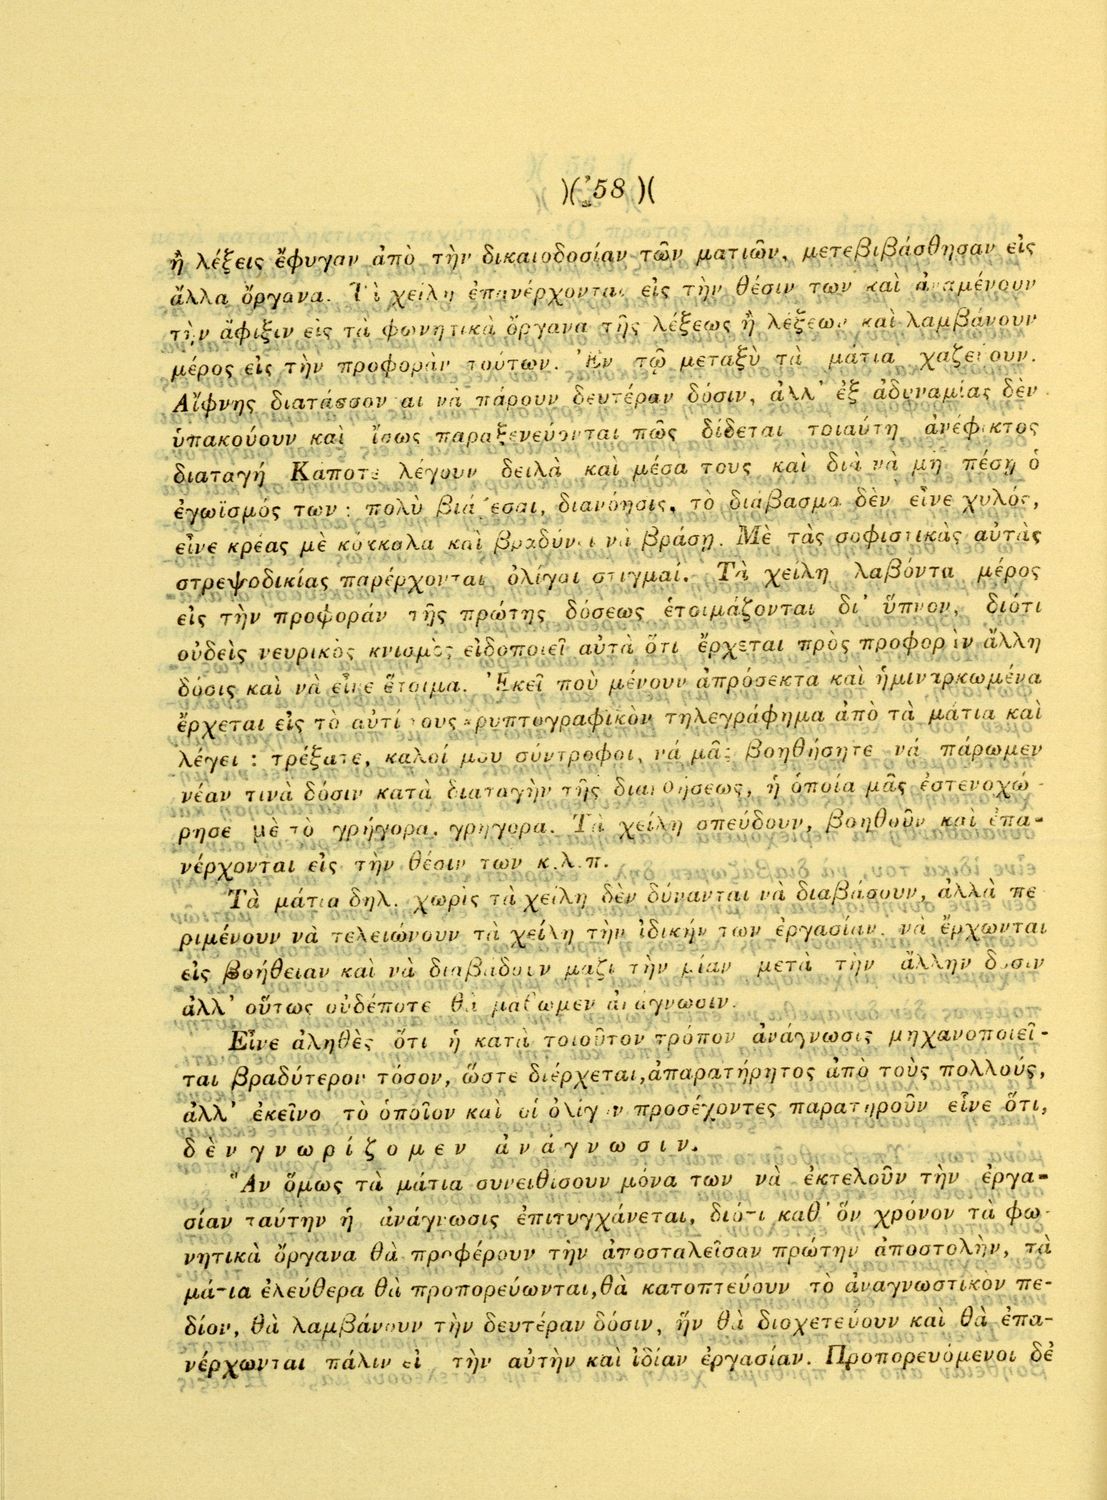 )( 58 )(
ἢ λέξεις ἔφυγαν ἀπὸ τὴν δικαιοδοσίαν τῶν ματιῶν, μετεβιβάσθησαν εἰς
ἄλλα ὄργανα. Τὰ χείλη ἐπανέρχονται εἰς τὴν θέσιν των καὶ ἀναμένουν
τὴν ἄφιξιν εἰς τὰ φωνητικὰ ὄργανα τῆς λέξεως ἢ λέξεων καὶ λαμβάνουν
μέρος εἰς τὴν προφορὰν τούτων. Ἐν τῷ μεταξὺ τὰ μάτια χαζεύουν.
Αἴφνης διατάσσονται νὰ πάρουν δευτέραν δόσιν, ἀλλ' ἐξ ἀδυναμίας δὲν
ὑπακούουν καὶ ἴσως παραξενεύονται πῶς δίδεται τοιαύτη ἀνέφικτος
διαταγή Κάποτε λέγουν δειλὰ καὶ μέσα τους καὶ διὰ νὰ μὴ πέσῃ ὁ
ἐγωϊσμός των : πολὺ βιάζεσαι, διανόησις, τὸ διάβασμα δὲν εἶνε χυλός,
εἶνε κρέας μὲ κόκκαλα καὶ βραδύνει νὰ βράσῃ. Μὲ τὰς σοφιστικὰς αὐτὰς
στρεψοδικίας παρέρχονται ὀλίγαι στιγμαί. Τὰ χείλη λαβόντα μέρος
εἰς τὴν προφοράν τῆς πρώτης δόσεως ἑτοιμάζονται δι' ὕπνον, διότι
οὐδεὶς νευρικὸς κνισμὸς εἰδοποιεῖ αὐτὰ ὅτι ἔρχεται πρὸς προφορὰν ἄλλη
δόσις καὶ νὰ εἶνε ἕτοιμα. Ἐκεῖ ποὺ μένουν ἀπρόσεκτα καὶ ἡμιναρκωμένα
ἔρχεται εἰς τὸ αὐτί τους κρυπτογραφικὸν τηλεγράφημα ἀπὸ τὰ μάτια καὶ
λέγει : τρέξατε, καλοί μου σύντροφοι, νά μᾶς βοηθήσητε νά πάρωμεν
νέαν τινὰ δόσιν κατὰ διαταγὴν τῆς διανοήσεως, ἡ ὁποία μᾶς ἐστενοχώ-
ρησε μὲ τὸ γρήγορα, γρήγορα. Τὰ χείλη σπεύδουν, βοηθοῦν καὶ ἐπα-
νέρχονται εἰς τὴν θέσιν των κ.λ.π.
Τὰ μάτια δηλ. χωρὶς τὰ χείλη δὲν δύνανται νὰ διαβάσουν, ἀλλὰ πε
ριμένουν νὰ τελειώνουν τὰ χείλη τὴν ἰδικήν των ἐργασίαν, νὰ ἔρχωνται
εἰς βοήθειαν καὶ νὰ διαβάδουν μαζὶ τὴν μίαν μετὰ τὴν ἄλλην δόσιν
ἀλλ' οὕτως οὐδέποτε θὰ μάθωμεν ἀνάγνωσιν.
Εἶνε ἀληθὲς ὅτι ἡ κατὰ τοιοῦτον τρόπον ἀνάγνωσις μηχανοποιεῖ-
ται βραδύτερον τόσον, ὥστε διέρχεται, ἀπαρατήρητος ἀπὸ τοὺς πολλούς,
ἀλλ' ἐκεῖνο τὸ ὁποῖον καὶ οἱ ὀλίγον προσέχοντες παρατηροῦν εἶνε ὅτι,
δὲν γνωρίζομεν ἀνάγνωσιν.
Ἂν ὅμως τὰ μάτια συνειθίσουν μόνα των νὰ ἐκτελοῦν τὴν ἐργα-
σίαν ταύτην ἡ ἀνάγνωσις ἐπιτυγχάνεται, διότι καθ' ὅν χρόνον τὰ φω-
νητικὰ ὄργανα θὰ προφέρουν τὴν ἀποσταλεῖσαν πρώτην ἀποστολὴν, τὰ
μάτια ἐλεύθερα θὰ προπορεύωνται, θὰ κατοπτεύουν τὸ ἀναγνωστικὸν πε-
δίον, θὰ λαμβάνουν τὴν δευτέραν δόσιν, ἣν θὰ διοχετεύουν καὶ θὰ ἐπα-
νέρχωνται πάλιν εἰς τὴν αὐτὴν καὶ ἰδίαν ἐργασίαν. Προπορευόμενοι δὲ